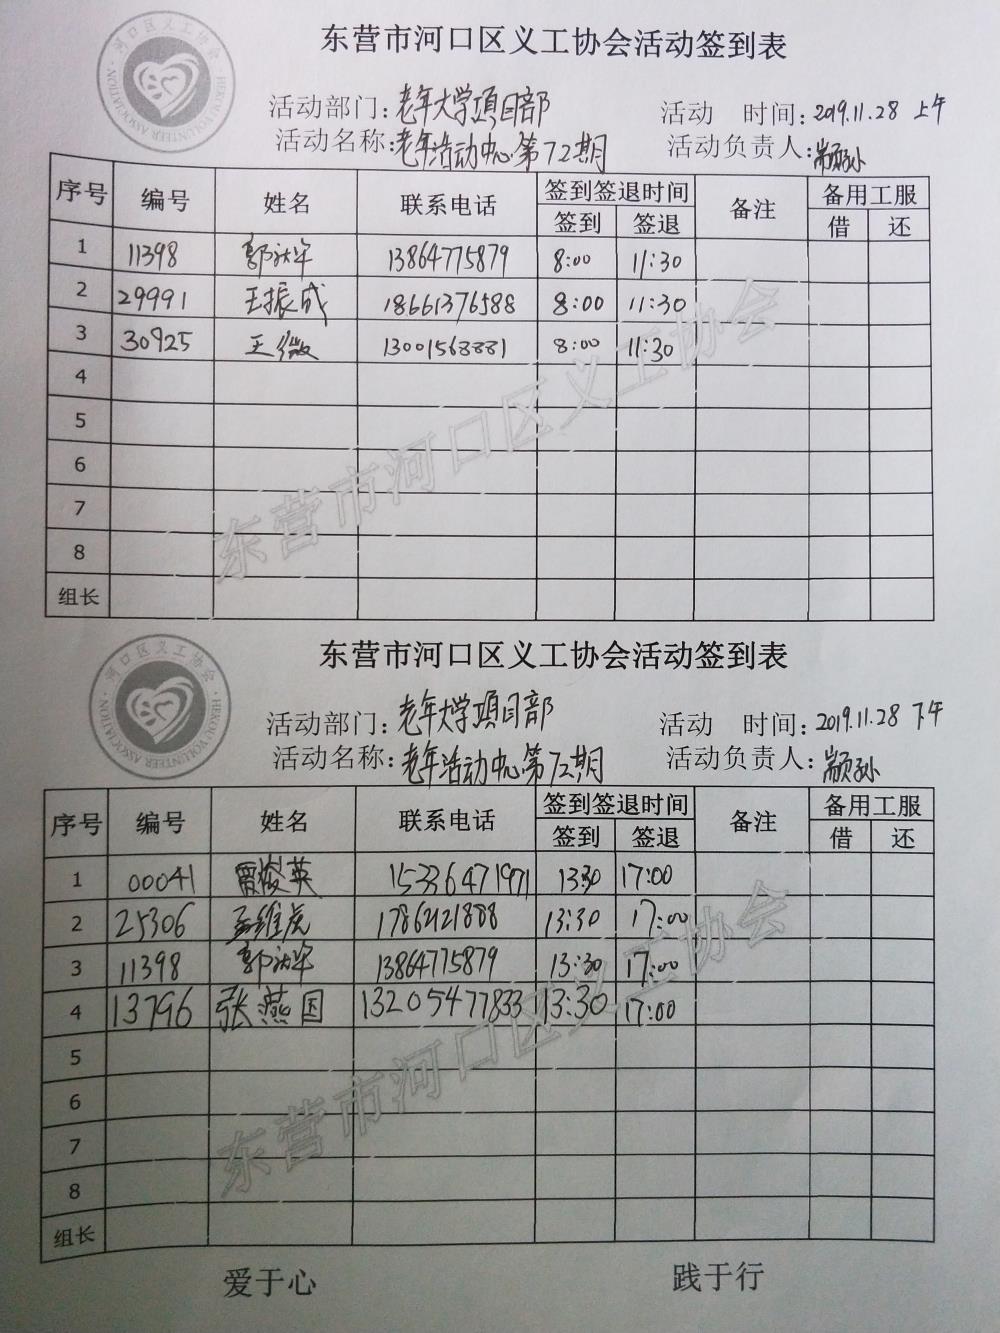 河口区义工协会
HEKOU VOLUNTEER ASSOCIATION
东营市河口区义工协会活动签到表
活动部门:老年大学项目部 活动 时间:2019.11.28 上午
活动名称:老年活动中心第72期 活动负责人:
序号 编号 姓名 联系电话 签到签退时间 备注 备用工服
签到 签退 借 还
1 11398 郭 13864775879 8:00 11:30
2 29991 王振成 18661376588 8:00 11:30
3 30925 王微 13001568881 8:00 11:30
4
5
6
7
8
组长
东营市河口区义工协会
河口区义工协会
HEKOU VOLUNTEER ASSOCIATION
东营市河口区义工协会活动签到表
活动部门:老年大学项目部 活动 时间:2019.11.28 下午
活动名称:老年活动中心第72期 活动负责人:
序号 编号 姓名 联系电话 签到签退时间 备注 备用工服
签到 签退 借 还
1 00041 贾俊英 15336471971 13:30 17:00
2 25306 孟维虎 17862121888 13:30 17:00
3 11398 郭 13864775879 13:30 17:00
4 13796 张燕国 13205477833 13:30 17:00
5
6
7
8
组长
东营市河口区义工协会
爱于心 践于行